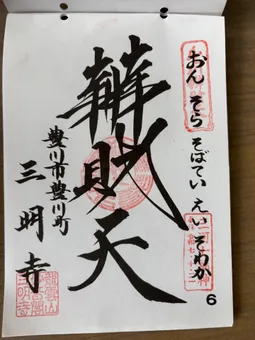 おん そら そばてい えい そわか
辨財天
豊川市豊川町
三明寺
6